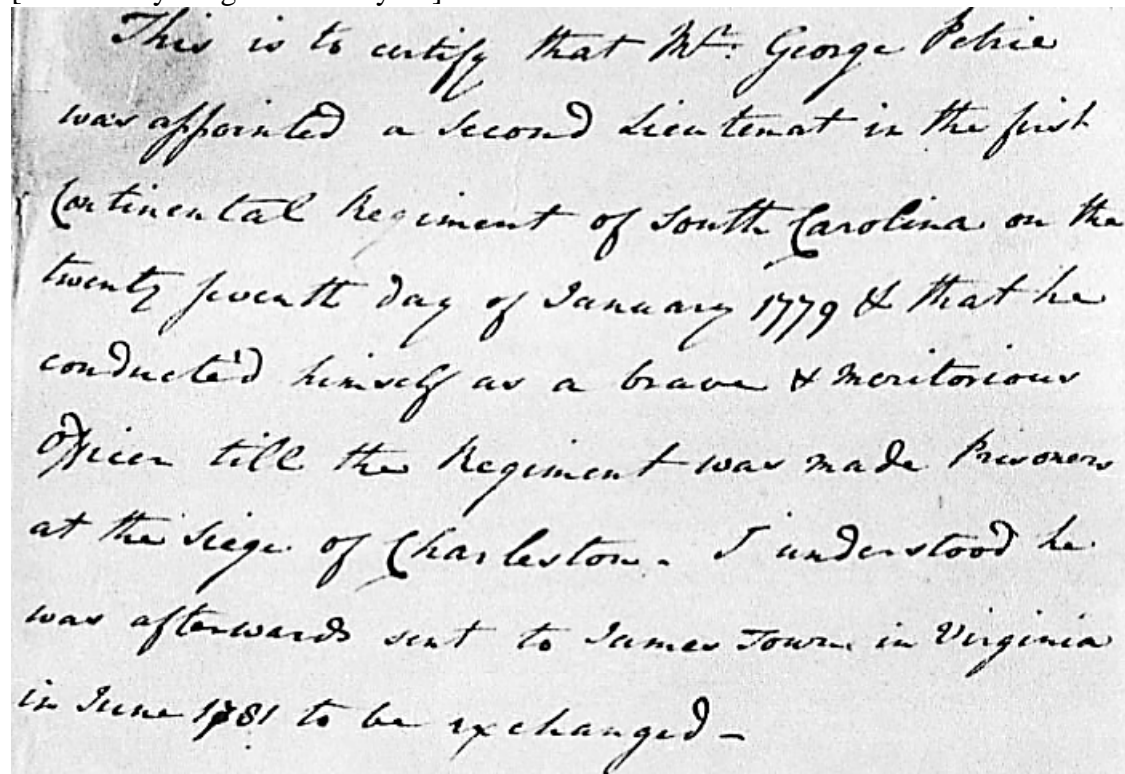 This is to certify that Mr: George Petrie
was appointed a Second Lieutenat in the first
Continental Regiment of South Carolina on the
twenty seventh day of January 1779 & that he
conducted himself as a brave & meritorious
Officer till the Regiment was made Prisoners
at the Siege of Charleston. I understood he
was afterwards sent to James Town in Virginia
in June 1781 to be exchanged –